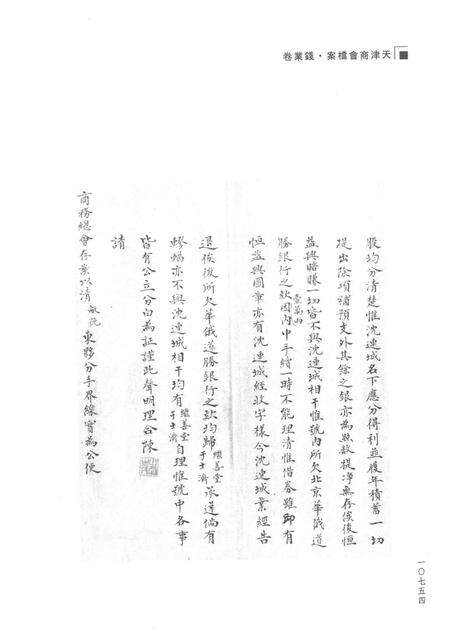 天津商會檔案·錢業卷
股均分清楚惟沈連城名下應分得利並歷年積蓄一切
提出除項補預支外其餘之銀亦為照數提淨無存俟後恒
益興賠賺一切皆不與沈連城相干惟號內所欠北京華俄道
勝銀行之款壹萬兩因內中手續一時不能理清惟借券雖即有
恒益興圖章亦有沈連城經收字樣今沈連城業經告
退俟後所欠華俄道勝銀行之款均歸繼善堂于士濟承還倘有
轇轕亦不與沈連城相干均有繼善堂于士濟自理惟號中各事
皆有公立分白為証謹此聲明理合陳
請
商務總會存案以清敝號東夥分手界線實為公便
一〇七五四